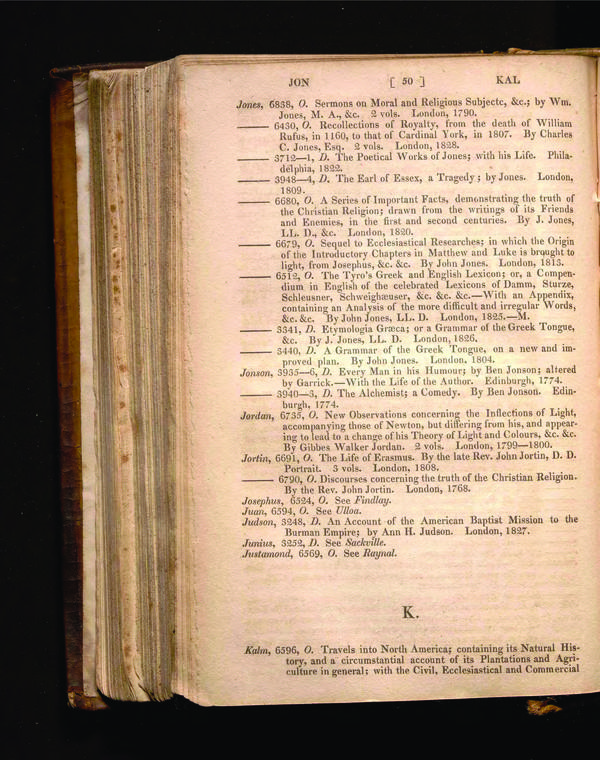 JON [ 50 ] KAL
Jones, 6838, O. Sermons on Moral and Religious Subjectc, &c.; by Wm.
Jones, M. A., &c. 2 vols. London, 1790.
—— 6430, O. Recollections of Royalty, from the death of William
Rufus, in 1160, to that of Cardinal York, in 1807. By Charles
C. Jones, Esq. 2 vols. London, 1828.
—— 3712—1, D. The Poetical Works of Jones; with his Life. Phila-
delphia, 1822.
—— 3948—4, D. The Earl of Essex, a Tragedy; by Jones. London,
1809.
—— 6680, O. A Series of Important Facts, demonstrating the truth of
the Christian Religion; drawn from the writings of its Friends
and Enemies, in the first and second centuries. By J. Jones,
LL. D., &c. London, 1820.
—— 6679, O. Sequel to Ecclesiastical Researches; in which the Origin
of the Introductory Chapters in Matthew and Luke is brought to
light, from Josephus, &c. &c. By John Jones. London, 1813.
—— 6512, O. The Tyro's Greek and English Lexicon; or, a Compen-
dium in English of the celebrated Lexicons of Damm, Sturze,
Schleusner, Schweighæuser, &c. &c. &c.—With an Appendix,
containing an Analysis of the more difficult and irregular Words,
&c. &c. By John Jones, LL. D. London, 1825.—M.
—— 3341, D. Etymologia Græca; or a Grammar of the Greek Tongue,
&c. By J. Jones, LL. D. London, 1826.
—— 3440, D. A Grammar of the Greek Tongue, on a new and im-
proved plan. By John Jones. London, 1804.
Jonson, 3935—6, D. Every Man in his Humour; by Ben Jonson; altered
by Garrick.—With the Life of the Author. Edinburgh, 1774.
—— 3940—3, D. The Alchemist; a Comedy. By Ben Jonson. Edin-
burgh, 1774.
Jordan, 6735, O. New Observations concerning the Inflections of Light,
accompanying those of Newton, but differing from his, and appear-
ing to lead to a change of his Theory of Light and Colours, &c. &c.
By Gibbes Walker Jordan. 2 vols. London, 1799—1800.
Jortin, 6691, O. The Life of Erasmus. By the late Rev. John Jortin, D. D.
Portrait. 3 vols. London, 1808.
—— 6790, O. Discourses concerning the truth of the Christian Religion.
By the Rev. John Jortin. London, 1768.
Josephus, 6524, O. See Findlay.
Juan, 6594, O. See Ulloa.
Judson, 3248, D. An Account of the American Baptist Mission to the
Burman Empire; by Ann H. Judson. London, 1827.
Junius, 3252, D. See Sackville.
Justamond, 6569, O. See Raynal.
K.
Kalm, 6596, O. Travels into North America; containing its Natural His-
tory, and a circumstantial account of its Plantations and Agri-
culture in general; with the Civil, Ecclesiastical and Commercial